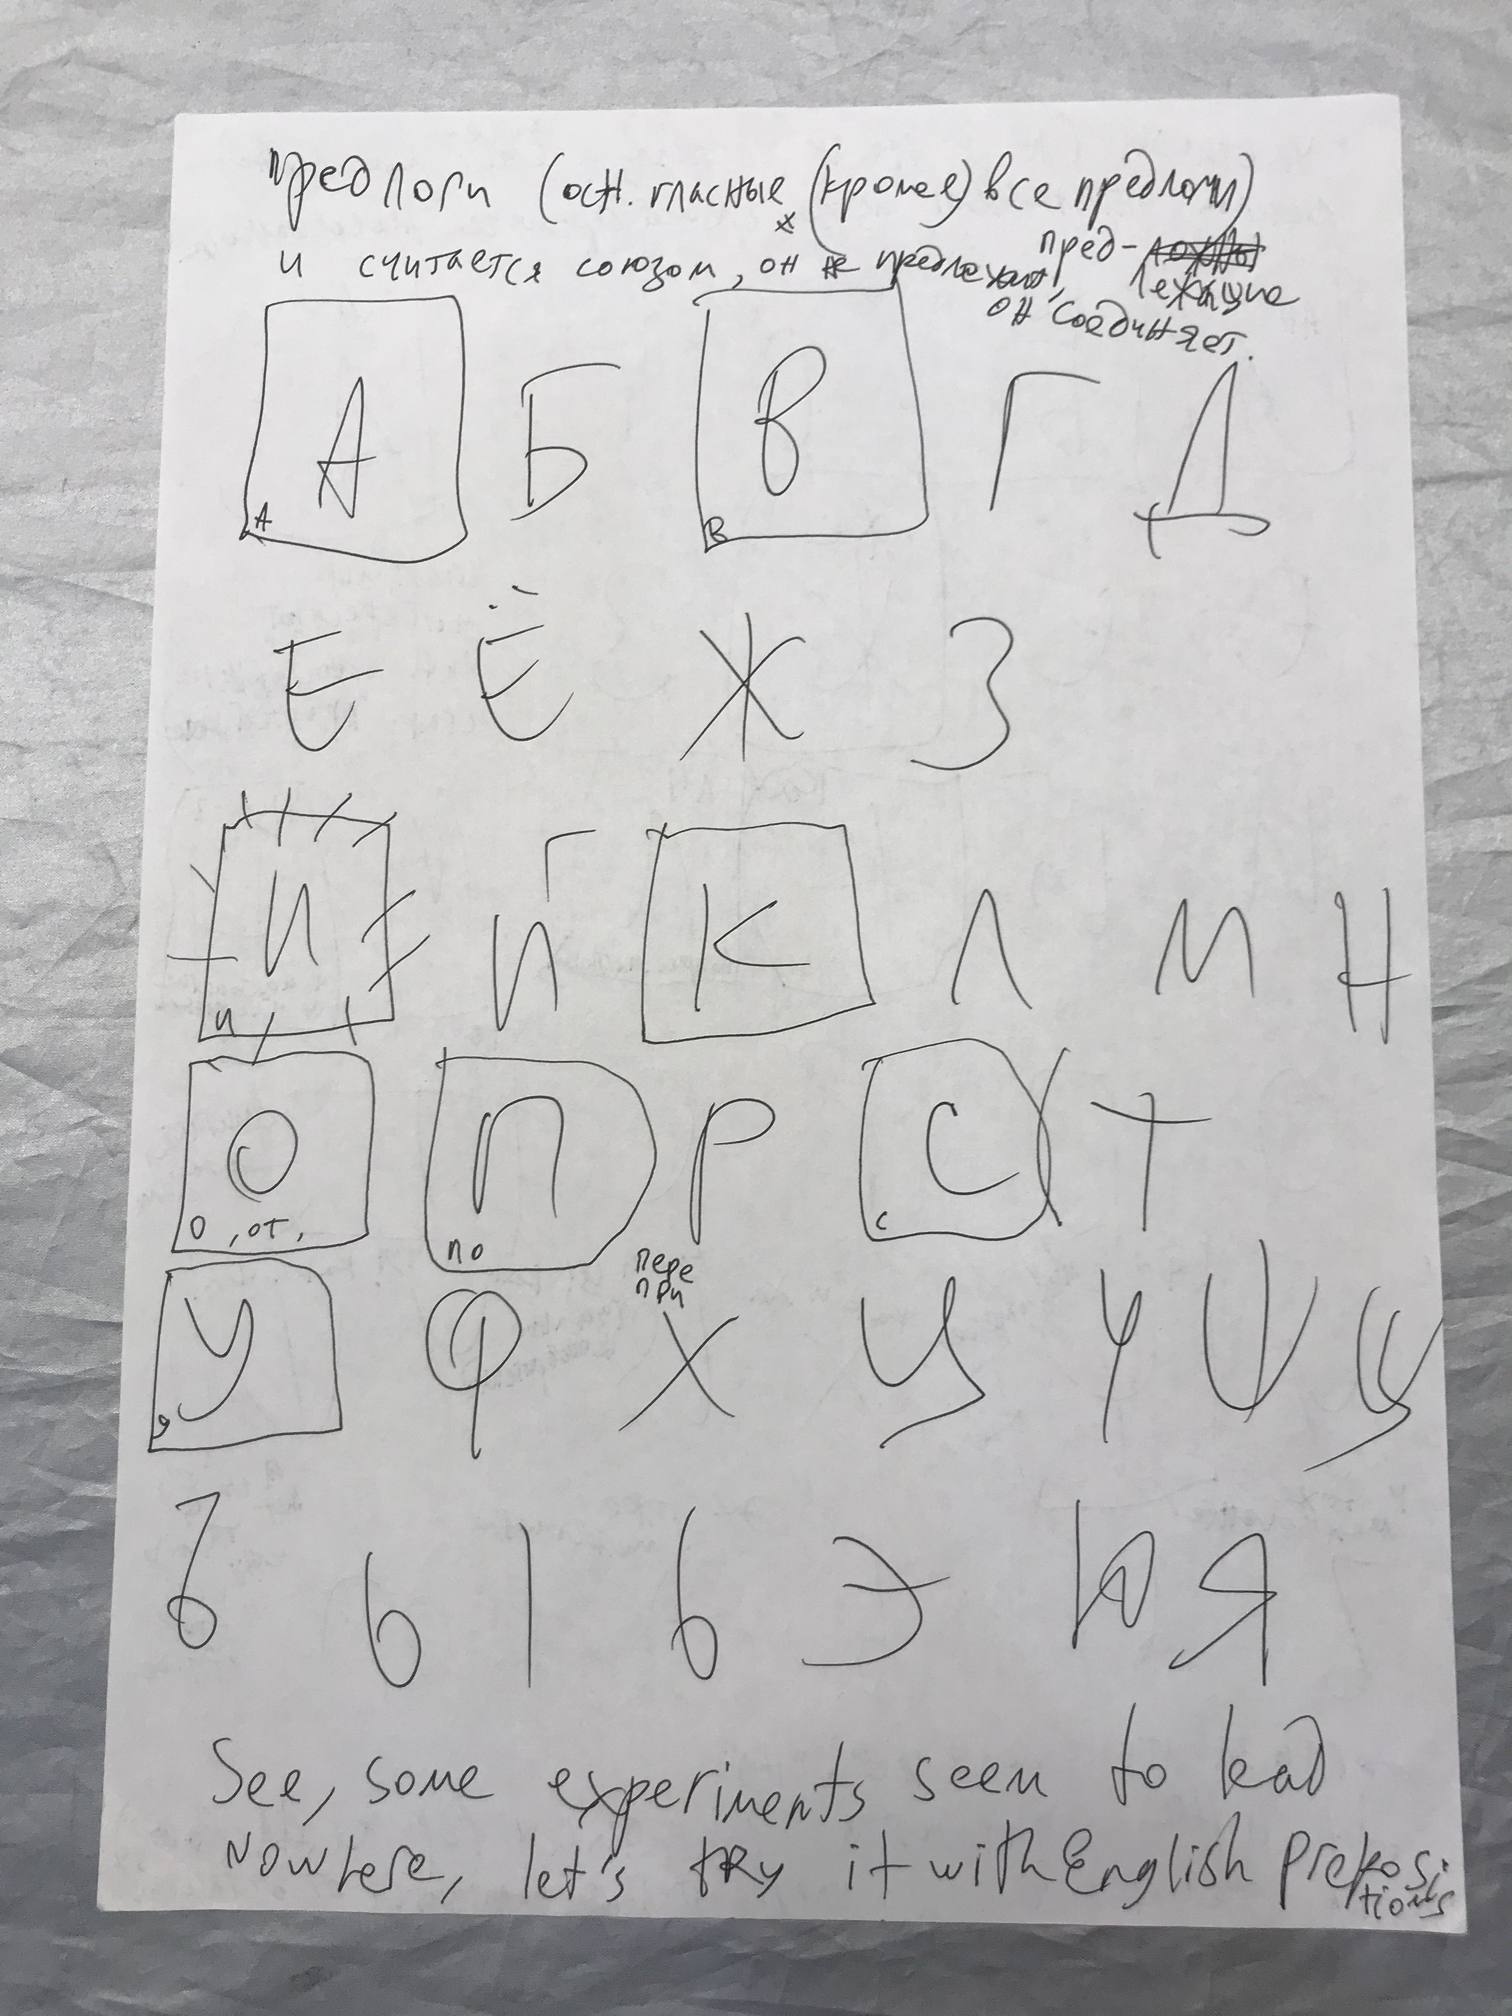 предлоги (осн. гласные (кроме) все предлоги)
и считается союзом, он не предлежит, пред-
лежащие
он соединяет.
А Б В Г Д
А В
Е Ё Ж З
И Й К Л М Н
и
О П Р С Т
о, от, по с
пере
при
У Ф Х Ц Ч Ш Щ
у
Ъ Ы Ь Э Ю Я
See, some experiments seem to lead
nowhere, let's try it with English preposi
tions